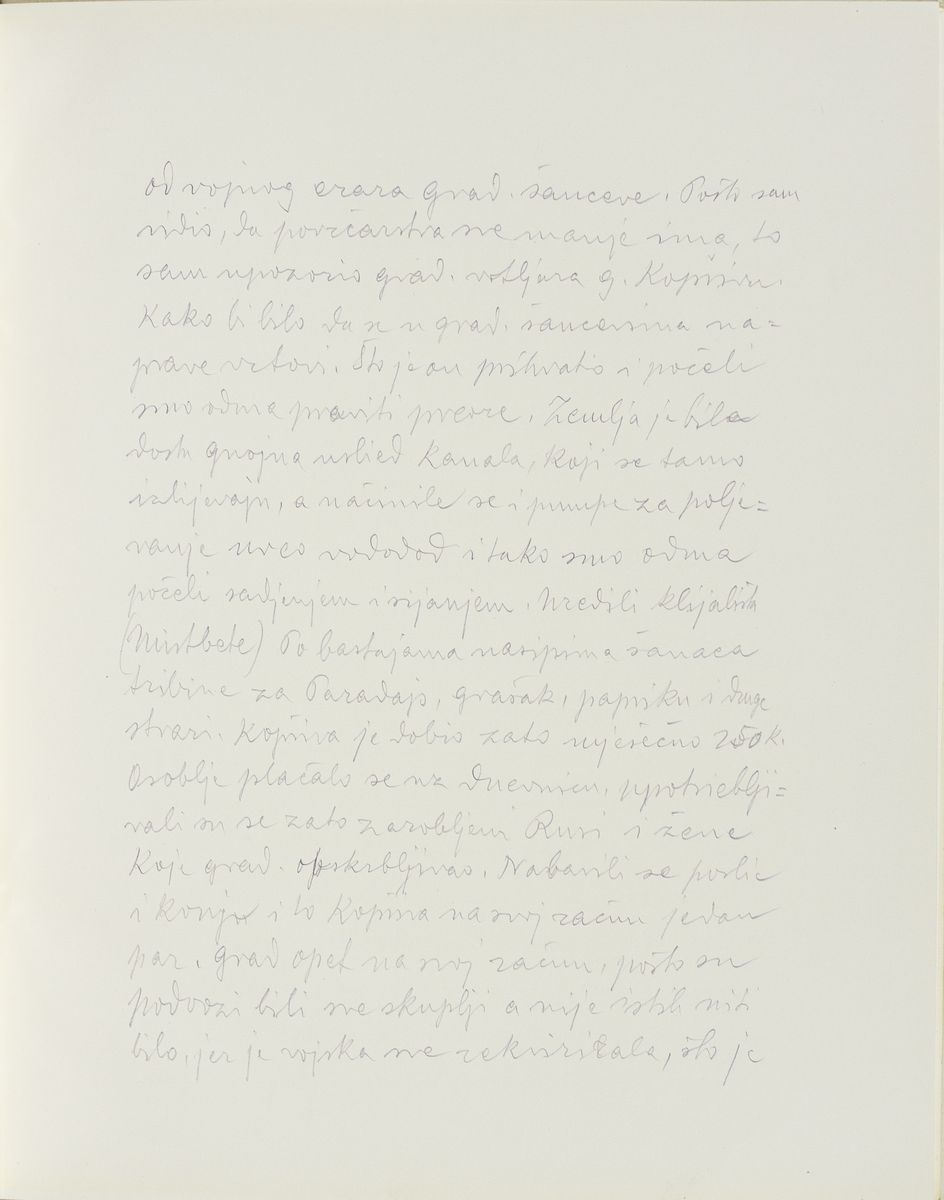 od vojnog erara grad. šanceve. Pošto sam
vidio, da povrćarstva sve manje ima, to
sam upozorio grad. vrtljara g. Kopšivu.
Kako bi bilo da se u grad. šancevima na=
prave vrtovi. Što je on prihvatio i počeli
smo odma praviti preore. Zemlja je bila
dosta gnojna uslied kanala, koji se tamo
izlijevaju, a načinile se i pumpe za polje=
vanje uveo vodovod i tako smo odma
počeli sadjenjem i sijanjem. Uredili klijališta
(Mistbete) Po bastajama nasipima šanaca
tribine za Paradajs, grašak, papriku i druge
stvari. Kopšiva je dobio zato mjesečno 250 K.
Osoblje plaćalo se uz dnevnicu, upotrieblji=
vali su se zato zarobljeni Rusi i žene
koje grad. opskrbljivao. Nabavili se poslie
i konje i to Kopšiva na svoj račun jedan
par. Grad opet na svoj račun, pošto su
podvozi bili sve skuplji a nije istih niti
bilo, jer je vojska sve rekvirirala, što je